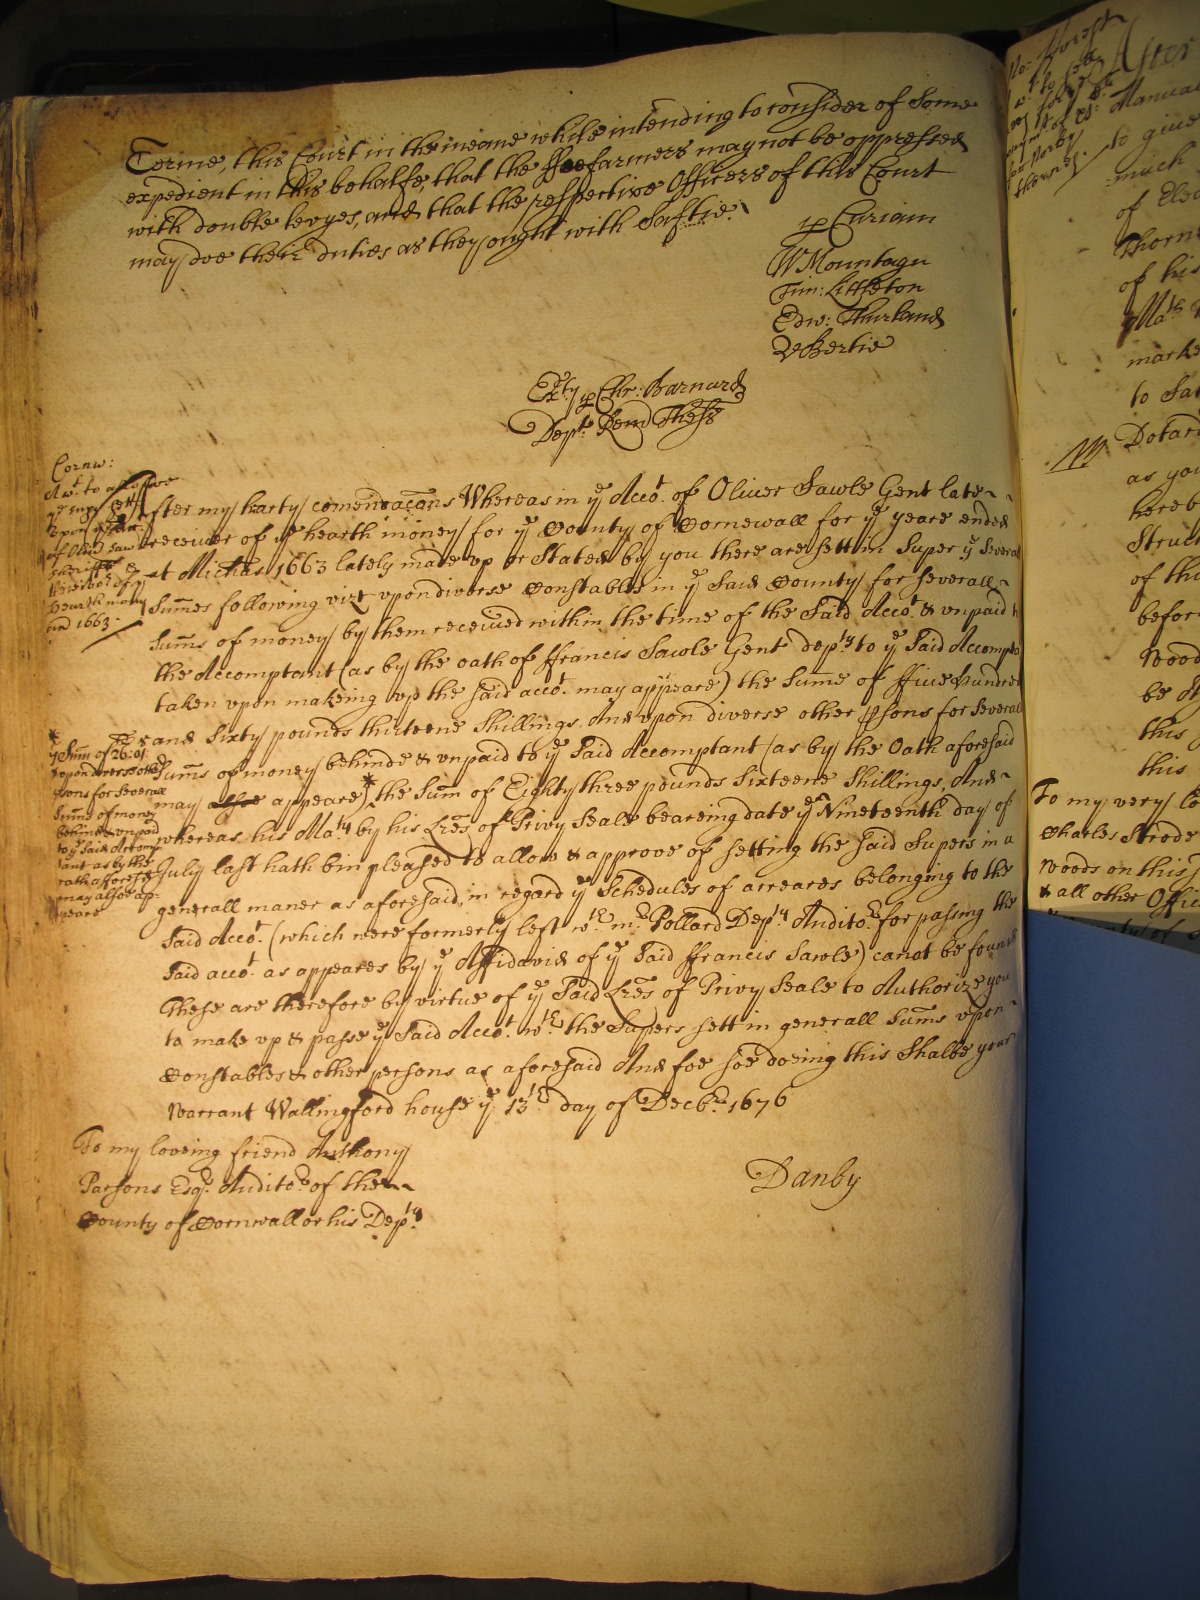 Terme, this Court in the meane while intending to consider of some
expedient in this behalfe, that the ffeefarmers may not be oppressed
with double levyes, and that the respective Officers of this Court
may doe their duties as they ought with saftie.
p Curiam
W Mountagu
Tim: Littleton
Edw: Thurland
V Bertie
Ex.ty p Chr: Barnard
Dep.t Rem Thess
Cornw:
A w.t to allowe
y.e supers sett
upon
of Oliv.r Sawle
Receiver of y.e
hearth mony
end 1663.
After my harty comendacons Whereas in y.e Acco.t of Oliver Sawle Gent late
receiver of y.e hearth money for y.e County of Cornewall for y.e yeare ended
at Michas 1663 lately made up or stated by you there are sett in Super y.e severall
Summes following vizt upon diverse Constables in y.e said County for severall
Sums of money by them received within the time of the said Acco.t & unpaid to
the Accomptant (as by the oath of ffrancis Sawle Gent dep.ty to y.e said Accompta
taken upon makeing up the said acco.t may appeare) the Summe of ffive hundred
and Sixty pounds thirteene Shillings, And upon diverse other psons for severall
Sums of money behinde & unpaid to y.e said Accomptant (as by the Oath aforesaid
may also appeare)* the Sum of Eighty three pounds Sixteene Shillings, And
whereas his Ma.ty by his Lres of Privy Seale beareing date y.e Nineteenth day of
July last hath bin pleased to allow & approve of setting the said Supers in a
generall maner as aforesaid, in regard y.e Schedules of arreares belonging to the
said Acco.t (which were formerly left w.th m.r Pollard Dep.ty Audito.r for passing the
said acco.t as appeares by y.e Affidavid of y.e said ffrancis Sawle) canot be found
These are therefore by virtue of y.e said Lres of Privy Seale to Authorize you
to make up & passe y.e said Acco.t w.th the Supers sett in generall Sums upon
Constables & other persons as aforesaid And foe soe doeing this Shalbe your
warrant Wallingford house y.e 13.th day of Decb.r 1676
*
y.e Sum of 26: 01:
upon diverse other
psons for severall
Summs of mony
behind & unpaid
to y.e said Accomp
tant as by the
oath afforesd
may also ap-
peare
Danby
To my loveing friend Anthony
Parsons Esq.r Audito.r of the
County of Cornwall or his Dep.ty
After
Manua
to give
much
of Elec
Thorn
of his
Ma.ts
marke
to Sa
Dotar
as you
hereb
Struc
of thi
befor
Wood
be
this
this
To my very lo
Charles Strode
Woods on this
& all other Offic